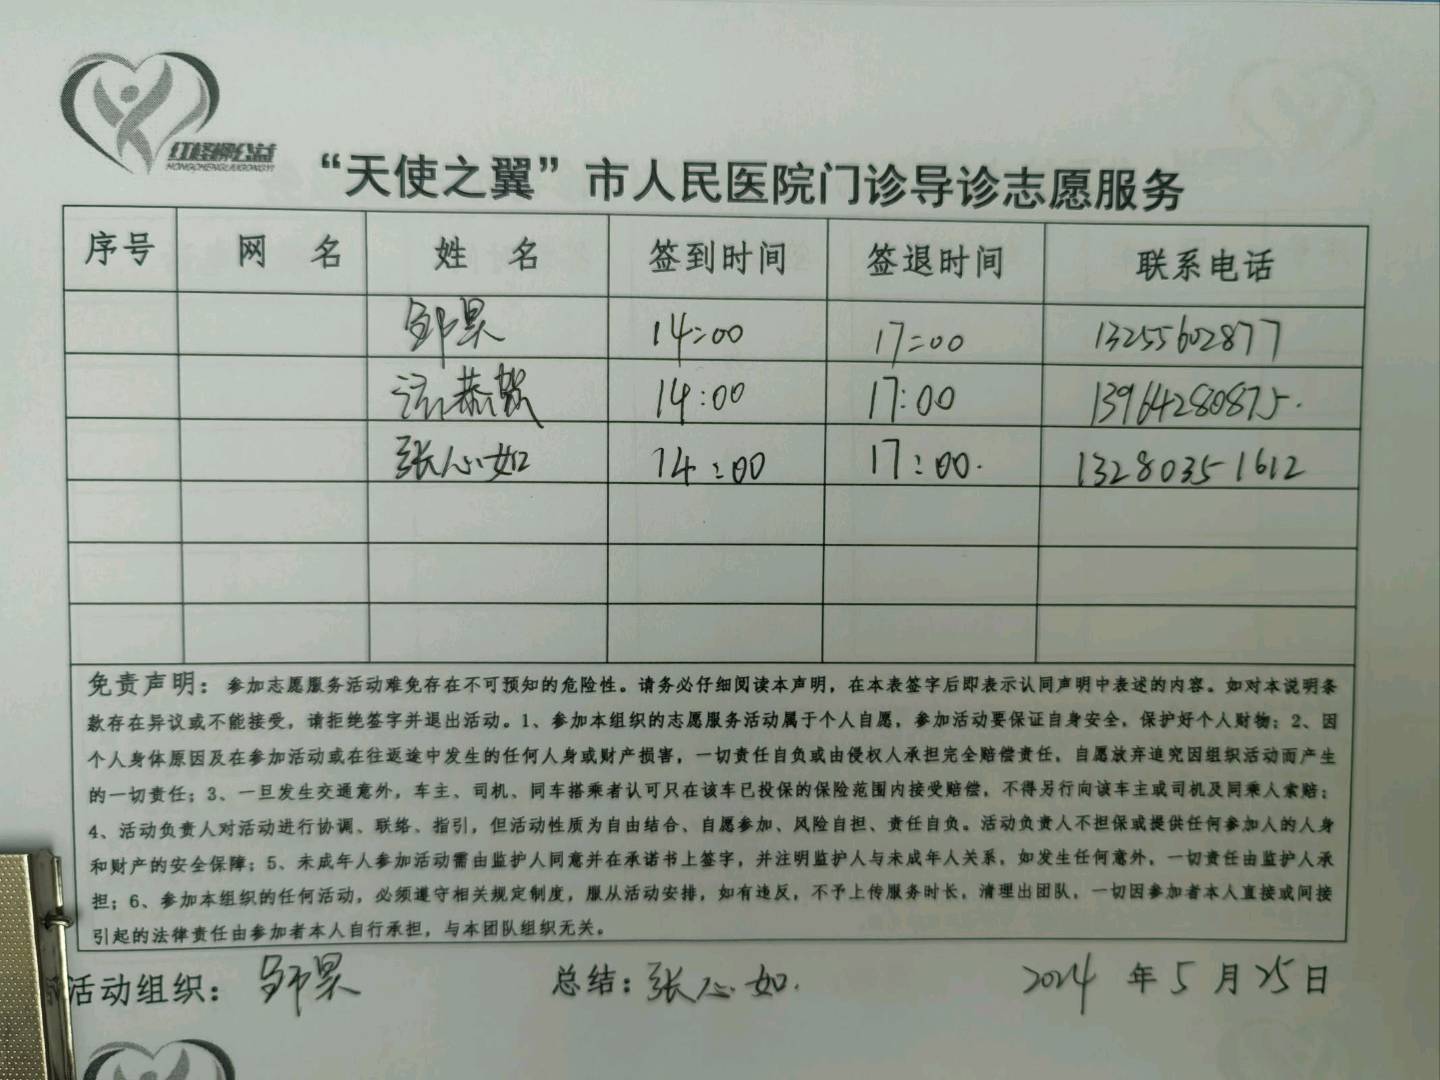 红樱柳公益
HONGCHENGLIUGONGYI
“天使之翼”市人民医院门诊导诊志愿服务
序号 网 名 姓 名 签到时间 签退时间 联系电话
邹昊 14:00 17:00 13255602877
14:00 17:00 13964280875.
张心如 14:00 17:00. 13280351612
免责声明：参加志愿服务活动难免存在不可预知的危险性。请务必仔细阅读本声明，在本表签字后即表示认同声明中表述的内容。如对本说明条
款存在异议或不能接受，请拒绝签字并退出活动。1、参加本组织的志愿服务活动属于个人自愿，参加活动要保证自身安全，保护好个人财物；2、因
个人身体原因及在参加活动或在往返途中发生的任何人身或财产损害，一切责任自负或由侵权人承担完全赔偿责任，自愿放弃追究因组织活动而产生
的一切责任；3、一旦发生交通意外，车主、司机、同车搭乘者认可只在该车已投保的保险范围内接受赔偿，不得另行向该车主或司机及同乘人索赔；
4、活动负责人对活动进行协调、联络、指引，但活动性质为自由结合、自愿参加、风险自担、责任自负。活动负责人不担保或提供任何参加人的人身
和财产的安全保障；5、未成年人参加活动需由监护人同意并在承诺书上签字，并注明监护人与未成年人关系，如发生任何意外，一切责任由监护人承
担；6、参加本组织的任何活动，必须遵守相关规定制度，服从活动安排，如有违反，不予上传服务时长，清理出团队，一切因参加者本人直接或间接
引起的法律责任由参加者本人自行承担，与本团队组织无关。
活动组织：邹昊 总结：张心如. 2024 年 5 月 25 日